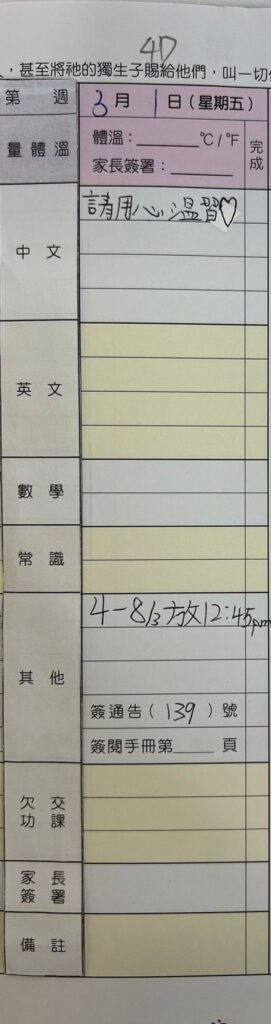 4D
，甚至將祂的獨生子賜給他們，叫一切
第 週 3月 1日（星期五）
量體溫 體溫：______℃/℉ 完成
家長簽署：______
中文 請用心溫習♡
英文
數學
常識
其他 4-8/3放12:45pm
簽通告（139）號
簽閱手冊第____頁
欠交功課
家長簽署
備註